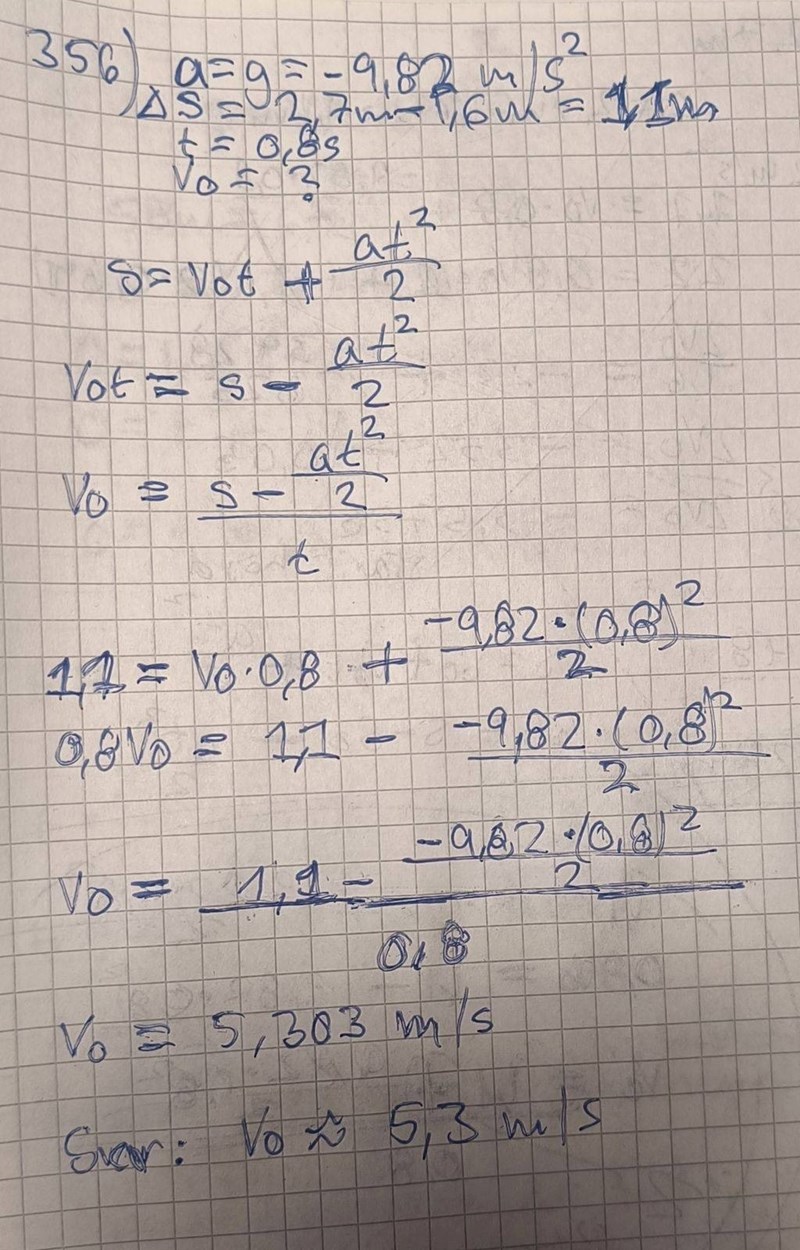 356) a = g = -9,82 m/s²
Δs = 2,7m - 1,6m = 1,1m
t = 0,8s
v₀ = ?
s = v₀t + at²/2
v₀t = s - at²/2
v₀ = (s - at²/2)/t
1,1 = v₀·0,8 + -9,82·(0,8)²/2
0,8v₀ = 1,1 - -9,82·(0,8)²/2
v₀ = (1,1 - -9,82·(0,8)²/2)/0,8
v₀ = 5,303 m/s
Svar: v₀ ≈ 5,3 m/s